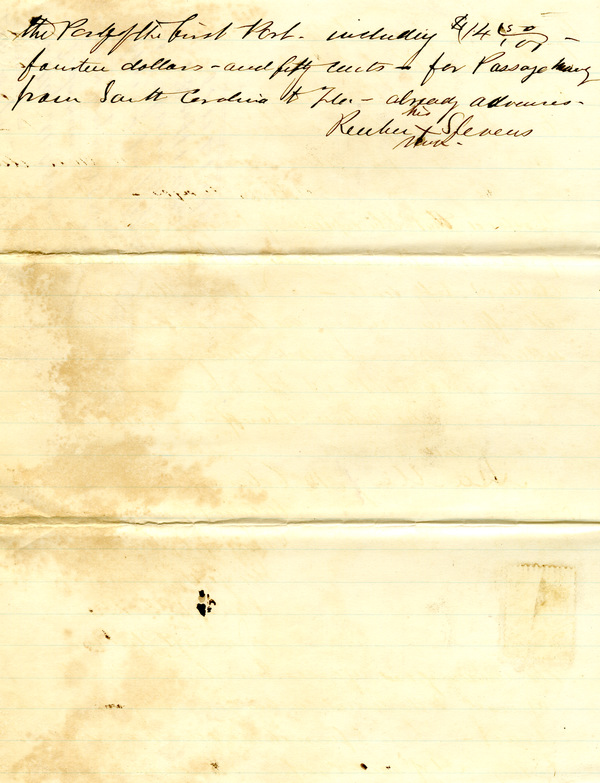 the Party of the first Part. including $14 50/100 –
fourteen dollars – and fifty cents – for Passage money
from South Carolina to Fla – already advances.
his
Reuben X Stevens
mark.